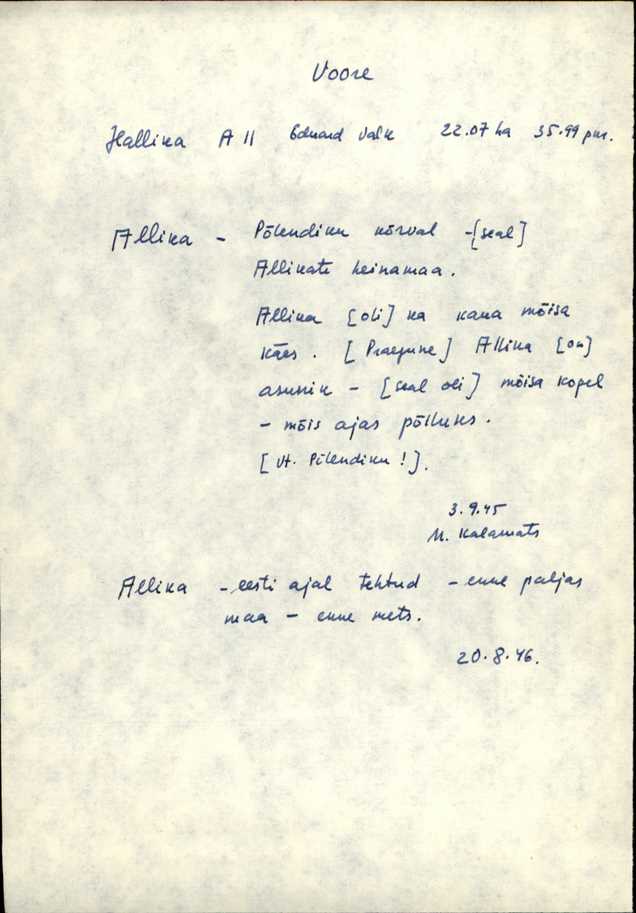 Voore
Hallika A II Eduard Valk 22.07 ha 35.99 pur.
Allika - Põlendiku kõrval - [seal]
Allikate heinamaa.
Allika [oli] ka kaua mõisa
käes. [Praegune] Allika [on]
asunik - [seal oli] mõisa kopel
- mõis ajas põlluks.
[Vt. Põlendiku!].
3.9.45
M. Kalamats
Allika - eesti ajal tehtud - enne paljas
maa - enne mets.
20.8.46.